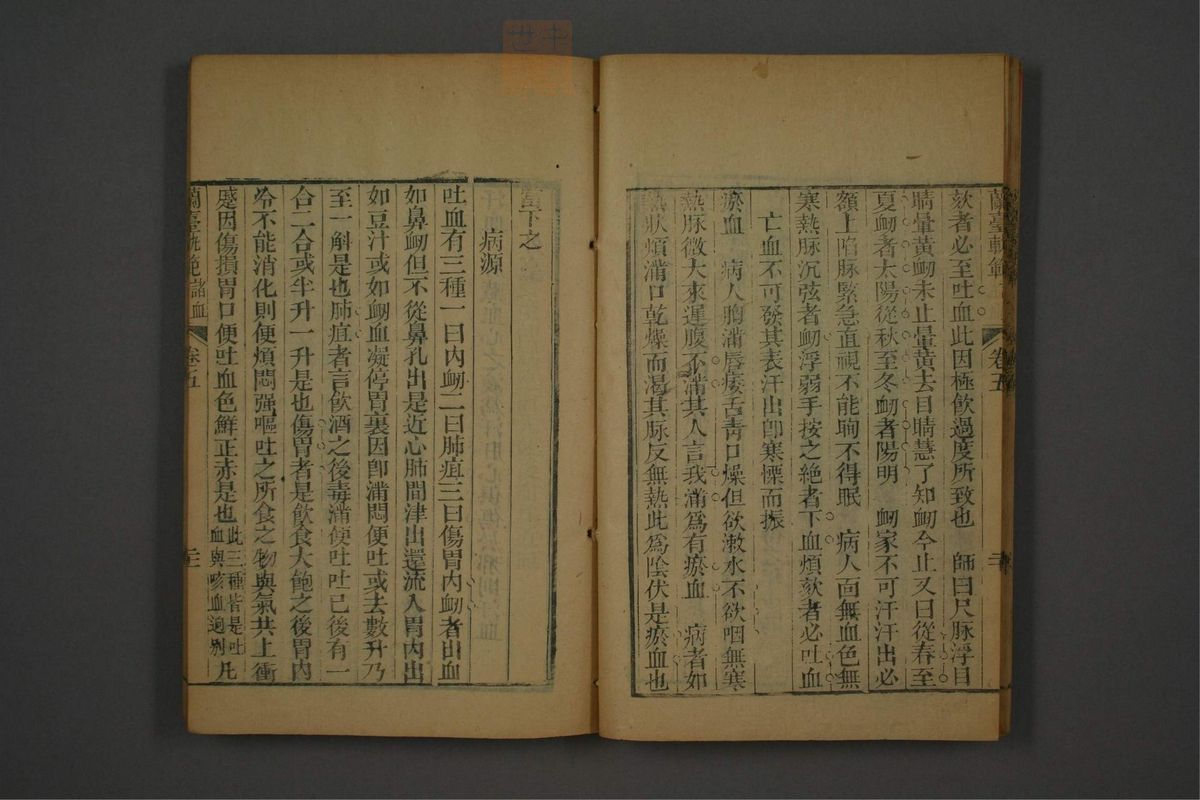 蘭臺軌範
卷五
欬者必至吐血此因極飲過度所致也　師曰尺脉浮目
睛暈黃衂未止暈黃去目睛慧了知衂今止又曰從春至
夏衂者太陽從秋至冬衂者陽明　衂家不可汗汗出必
額上陷脉緊急直視不能眴不得眠　病人面無血色無
寒熱脉沉弦者衂浮弱手按之絶者下血煩欬者必吐血
亡血不可發其表汗出卽寒慄而振
瘀血　病人胸滿唇痿舌靑口燥但欲漱水不欲咽無寒
熱脉微大來遲腹不滿其人言我滿爲有瘀血　病者如
熱狀煩滿口乾燥而渴其脉反無熱此爲陰伏是瘀血也
當下之
病源
吐血有三種一曰內衂二曰肺疽三曰傷胃內衂者出血
如鼻衂但不從鼻孔出是近心肺間津出還流入胃內出
如豆汁或如衂血凝停胃裏因卽滿悶便吐或去數升乃
至一斛是也肺疽者言飲酒之後毒滿便吐吐已後有一
合二合或半升一升是也傷胃者是飲食大飽之後胃內
冷不能消化則便煩悶强嘔吐之所食之物與氣共上衝
蹙因傷損胃口便吐血色鮮正赤是也此三種皆是吐
血與咳血逈別凡
蘭臺軌範
諸血
卷五